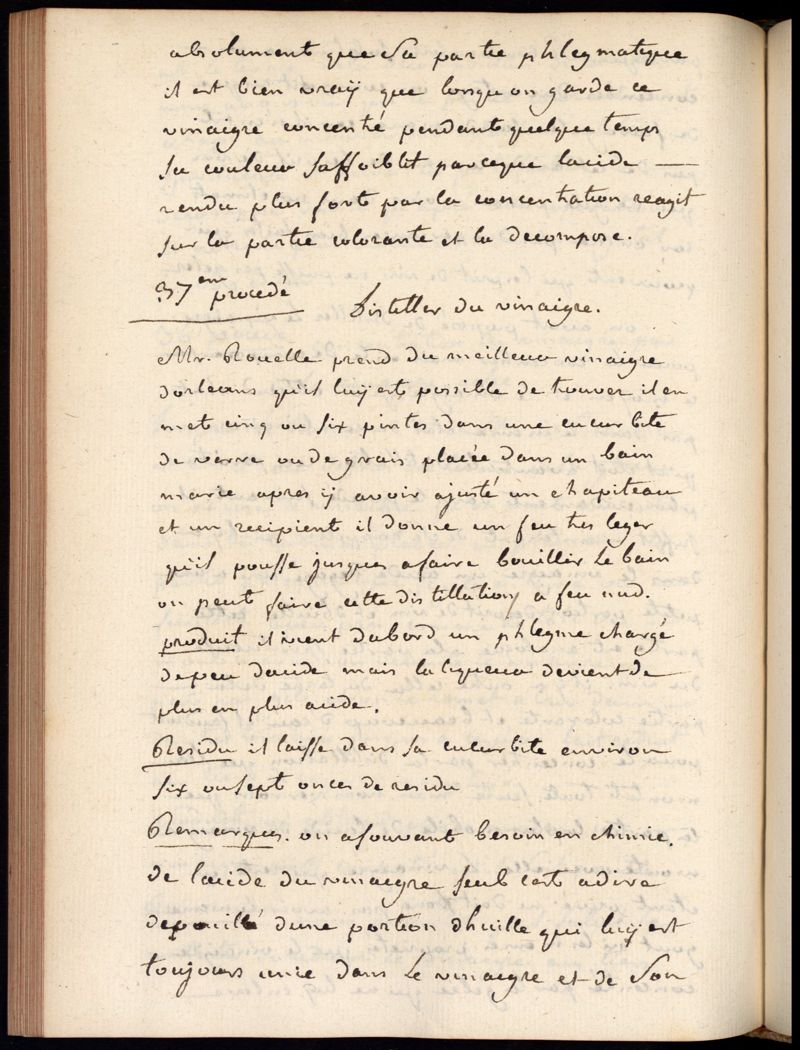 absolument que sa partie phlegmatique
il est bien vraÿ que lorsqu on garde ce
vinaigre concentré pendant quelque temps
sa couleur saffoiblit parceque lacide —
rendu plus fort par la concentration reagit
sur la partie colorante et la decompose.
37eme procedé
Distiller du vinaigre.
Mr. Rouelle prend du meilleur vinaigre
dorleans qu'il luÿ est possible de trouver il en
met cinq ou six pintes dans une cucurbite
de verre ou de grais placée dans un bain
marie apres ÿ avoir ajusté un chapiteau
et un recipient il donne un feu tres leger
qu'il pousse jusques a faire bouillir le bain
on peut faire cette distillation a feu nud.
produit il vient dabord un phlegme chargé
de peu dacide mais la liqueur devient de
plus en plus acide.
Residu il laisse dans sa cucurbite environ
six ou sept onces de residu
Remarques. on a souvant besoin en chimie.
de lacide du vinaigre seul cest a dire
depouillé dune portion dhuille qui luÿ est
toujours unie dans le vinaigre et de son